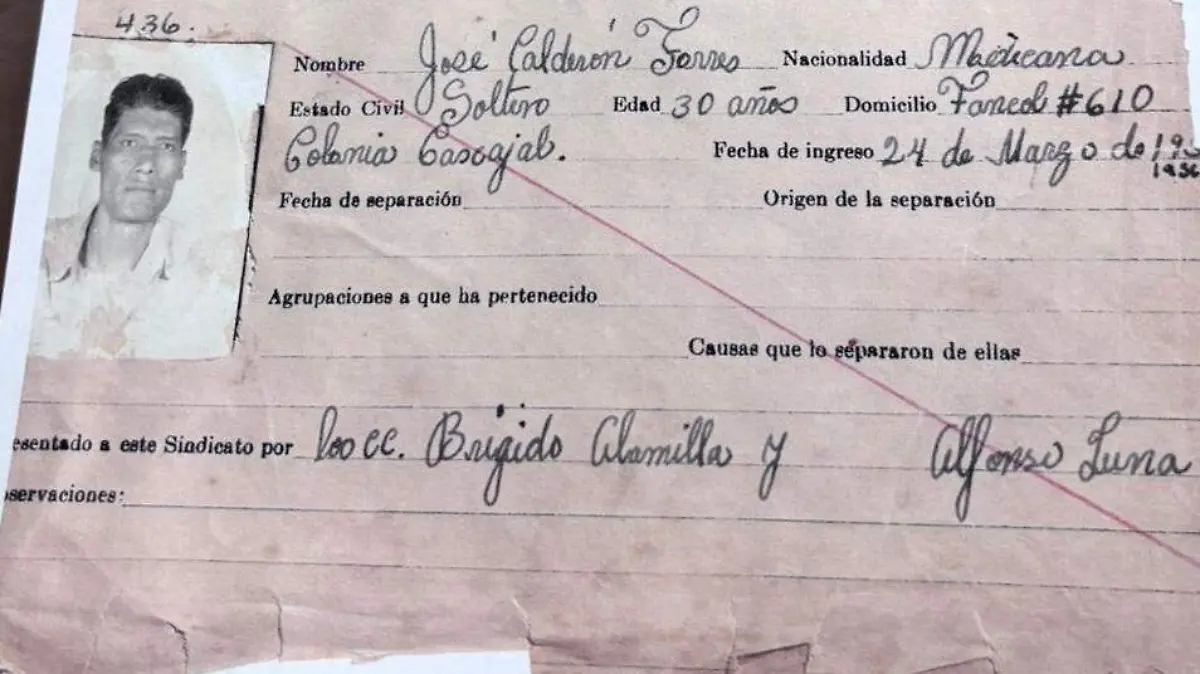 436.
Nombre José Calderón Torres Nacionalidad Mexicana
Estado Civil Soltero Edad 30 años Domicilio #610
Colonia Cascajal. Fecha de ingreso 24 de Marzo de 195
1956
Fecha de separación Origen de la separación
Agrupaciones a que ha pertenecido
Causas que lo separaron de ellas
esentado a este Sindicato por los CC. Brigido Alamilla y Alfonso Luna
servaciones: